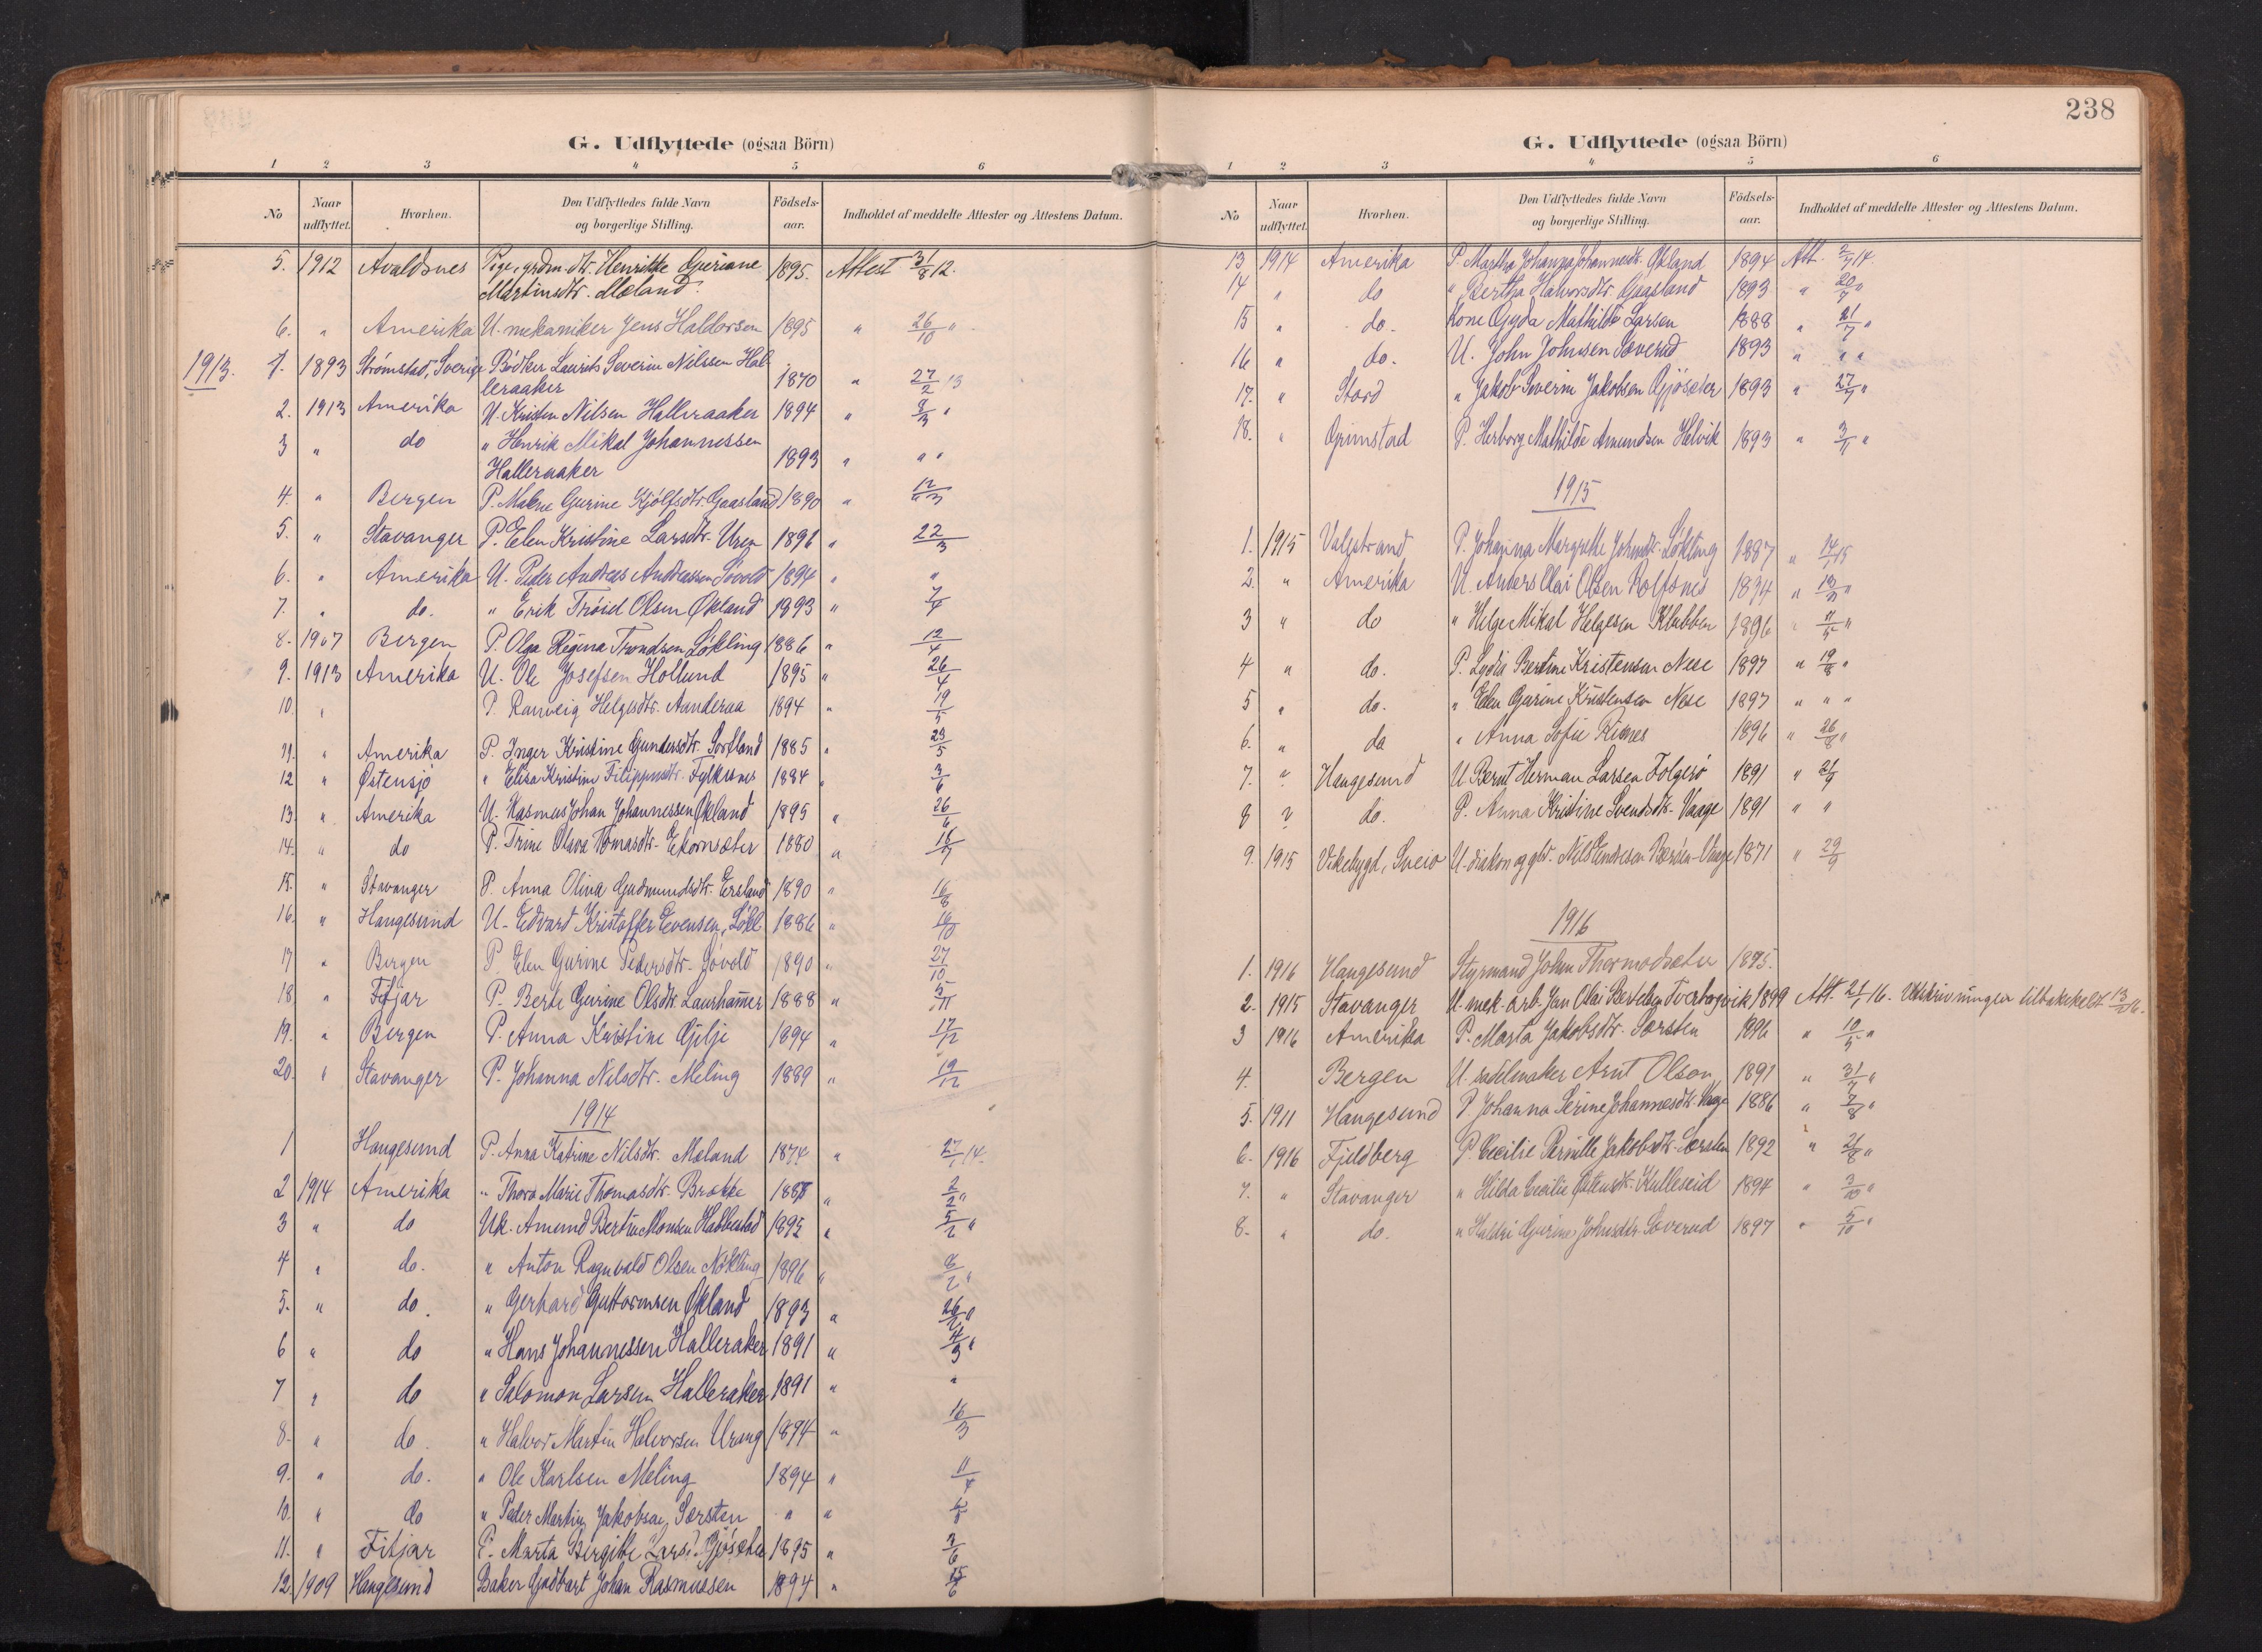 G. Udflyttede (ogsaa Börn)
1 2 3 4 5 6
No Naar udflyttet. Hvorhen. Den Udflyttedes fulde Navn og borgerlige Stilling. Födsels-aar. Indholdet af meddelte Attester og Attestens Datum.
5. 1912 Avaldsnes Pige, grdm.dtr. Henritte Guriane 1895. Attest 31/8 12.
Martinsdtr. Mæland.
6. " Amerika U. mekaniker Jens Haldorsen 1895 " 26/10 "
1913. 1. 1893 Strømstad, Sverige Bødker Laurits Severin Nilssen Hal-
leraaker 1870 " 27/2 13
2. 1913 Amerika U. Kristen Nilsen Halleraaker 1894 " 8/3 "
3 " do " Henrik Mikal Johannessen
Halleraaker 1893 " " "
4. " Bergen P. Malene Gurine Kjølfsdtr. Gaasland 1890 " 12/3
5. " Stavanger P. Elen Kristine Larsdtr. Uren 1896 " 22/3
6. " Amerika U. Peder Andreas Andreassen Søvold 1894 " "
7. " do. " Erik Trøid Olsen Økland 1893 " 7/4
8. 1907 Bergen P. Olga Regina Trondsen Løkling 1886 " 12/4
9. 1913 Amerika U. Ole Josefsen Hollund 1895 " 26/4
10. " P. Ranveig Helgesdtr. Aanderaa 1894 " 19/5
11. " Amerika P. Inger Kristine Gundersdtr. Sortland 1885 " 23/5
12 " Østensjø " Elisa Kristine Filippusdtr. Fylkesnes 1884 " 3/6
13. " Amerika U. Rasmus Johan Johannessen Økland 1895 " 26/6
14. " do P. Trine Olava Tomasdtr. Ekornsæter 1880 "
15. " Stavanger P. Anna Olina Gudmundsdtr. Ersland 1890 " 16/8
16. " Haugesund U. Edvard Kristoffer Evensen, Løkl. 1886 " 10/10
17 " Bergen P. Elen Gurine Pedersdtr. Søvold 1890 " 27/10
18. " Fitjar P. Berte Gurine Olsdtr. Laurhammer 1888 " 5/11
19. " Bergen P. Anna Kristine Gilje 1894 " 17/12
20. " Stavanger P. Johanna Nilsdtr. Meling 1889 " 19/12
1914
1 Haugesund P. Anna Katrine Nilsdtr. Mæland 1874 " 27/1 14.
2 1914 Amerika " Thora Marie Thomasdtr. Brakke 1888 " 2/2 "
3 " do Uk. Amund Bertin Monsen Habbestad 1895 " 5/2 "
4 " do. " Anton Ragnvald Olsen Nøkling 1896 " 6/2 "
5. " do. " Gerhard Guttormsen Økland 1893 " 26/2 "
6 " do " Hans Johannessen Halleraker 1891 " 4/3 "
7 " do " Salomon Larsen Halleraker 1891 " "
8. " do. " Halvor Martin Halvorsen Urang 1894 " 16/3
9. " do. " Ole Karlsen Meling 1894 " 11/4
10. " do " Peder Martin Jakobsen Særsten " "
11. " Fitjar P. Marta Birgitte Larsd. Gjøsæter 1895 " 2/6
12. 1909 Haugesund Baker Godtfart Johan Rasmussen 1894 " 15/6
238
G. Udflyttede (ogsaa Börn)
1 2 3 4 5 6
No Naar udflyttet. Hvorhen. Den Udflyttedes fulde Navn og borgerlige Stilling. Födsels-aar. Indholdet af meddelte Attester og Attestens Datum.
13 1914 Amerika P. Martha Johanna Johannesdtr. Økland 1894 Att. 2/7 14.
14 " do " Bertha Halvorsdtr. Gaasland 1893 " 20/7 "
15 " do. Kone Gyda Mathilde Larsen 1888 " 21/7 "
16 " do. U. John Johnsen Sæverud 1893 " " "
17. " Stord " Jakob Severin Jakobsen Gjøsæter 1893 " 27/7 "
18. " Grimstad P. Herborg Mathilde Amundsen Helvik 1893 " 3/11 "
1915
1. 1915 Valestrand P. Johanna Margrethe Johnsdtr. Løkling 1887 " 14/1 15
2. " Amerika U. Anders Olai Olsen Rolfsnes 1894 " "
3 " do " Helge Mikal Helgesen Klubben 1896 " 11/5 "
4 " do. P. Lydia Bertine Kristensen Nese 1897 " 19/8 "
5 " do. " Elen Gurine Kristensen Nese 1897 " " "
6. " do " Anna Sofie Titlnes 1896 " 26/8 "
7. ? Haugesund U. Bernt Herman Larsen Folgerø 1891 " 21/9
8 ? do. P. Anna Kristine Svendsdtr. Vaage 1891 " "
9. 1915 Vikebygd, Sveio U. diakon og gbr. Nils Endresen Særsten-Vaage 1871 " 29/9
1916
1. 1916 Haugesund Styrmand John Thormodsæter 1875.
2. 1915 Stavanger U. mek. arb. Jens Olai Bertelsen Tverborgvik 1899 Att. 21/1 16. Utskrivningen tilbakekalt 13/10 16.
3 1916 Amerika P. Marta Jakobsdtr. Særsten 1896 " 10/5 "
4. Bergen U. sadelmaker Arnt Olson 1891 " 31/7 "
5. 1911 Haugesund P. Johanna Serine Johannesdtr. Vaage 1886 " 7/8 "
6. 1916 Fjeldberg P. Cecilie Pernille Jakobsdtr. Særsten 1892 " 21/8 "
7. " Stavanger " Hilda Cecilie Østensdtr. Kulleseid 1894 " 3/10 "
8. " do. " Haldri Gurine Johnsdtr. Sæverud 1897 " 5/10 "